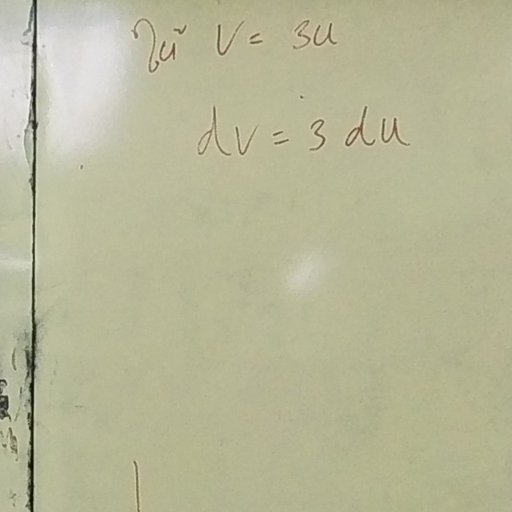 ให้ v = 3u
dv = 3 du